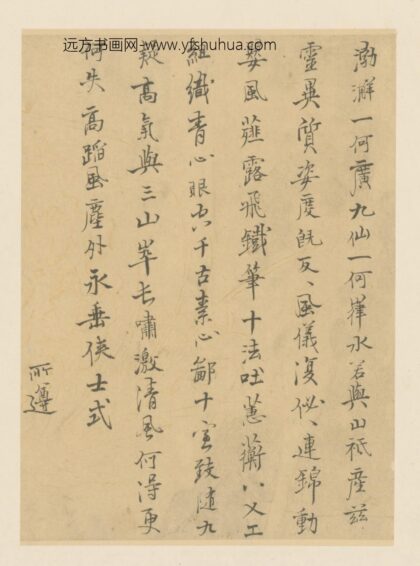 远方书画网-www.yfshuhua.com
渤澥一何廣九仙一何崋水若與山祇產茲
靈異質姿度既反〻風儀復佖〻連錦動
斐風薤露飛鐵筆十法吐蕙蘅八乂工
組織青心眼穴千古素心鄙十室数随九
疑高氣與三山崒長嘯激清風何得更
何失高蹈風塵外永垂俟士式
所遵